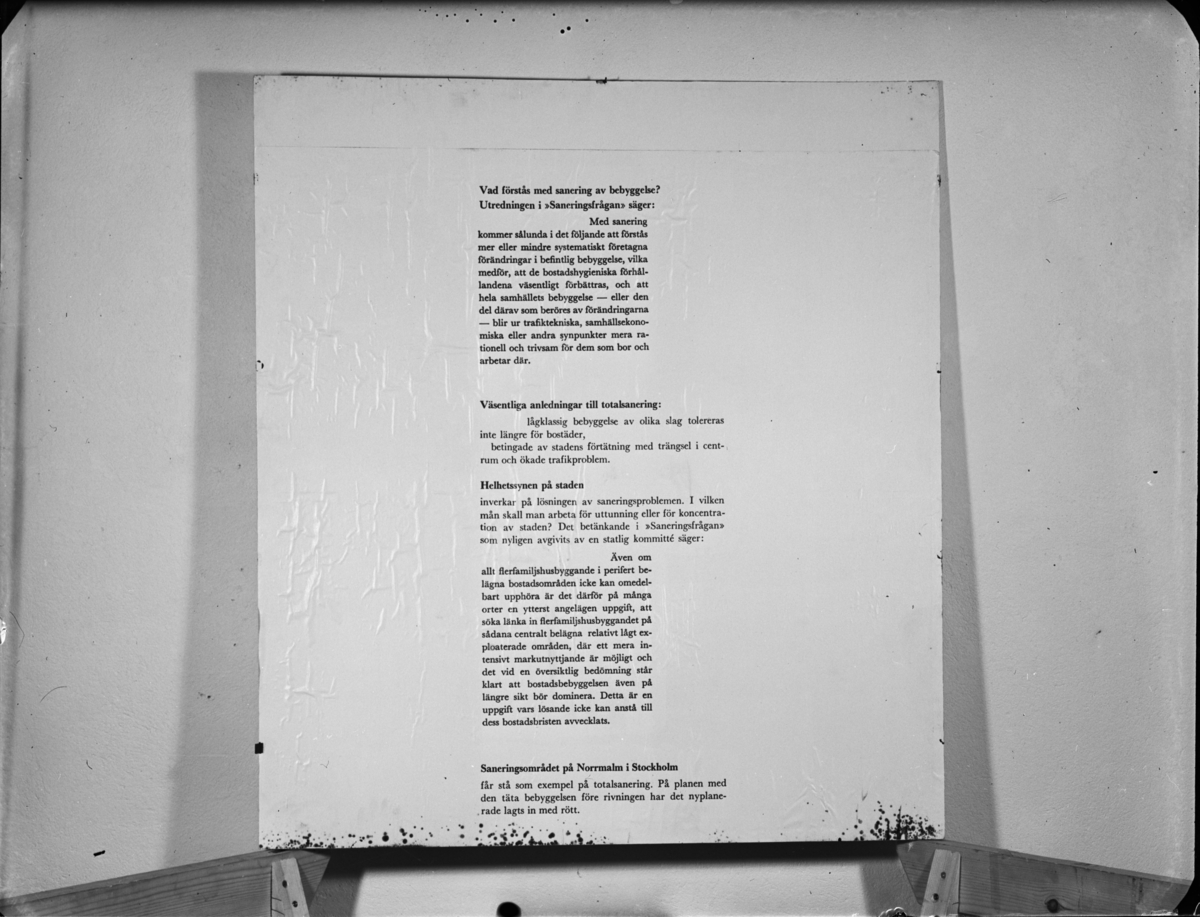 Vad förstås med sanering av bebyggelse?
Utredningen i »Saneringsfrågan» säger:
Med sanering
kommer sålunda i det följande att förstås
mer eller mindre systematiskt företagna
förändringar i befintlig bebyggelse, vilka
medför, att de bostadshygieniska förhål-
landena väsentligt förbättras, och att
hela samhällets bebyggelse — eller den
del därav som beröres av förändringarna
— blir ur trafiktekniska, samhällsekono-
miska eller andra synpunkter mera ra-
tionell och trivsam för dem som bor och
arbetar där.
Väsentliga anledningar till totalsanering:
lågklassig bebyggelse av olika slag tolereras
inte längre för bostäder,
betingade av stadens förtätning med trängsel i cent-
rum och ökade trafikproblem.
Helhetssynen på staden
inverkar på lösningen av saneringsproblemen. I vilken
mån skall man arbeta för uttunning eller för koncentra-
tion av staden? Det betänkande i »Saneringsfrågan»
som nyligen avgivits av en statlig kommitté säger:
Även om
allt flerfamiljshusbyggande i perifert be-
lägna bostadsområden icke kan omedel-
bart upphöra är det därför på många
orter en ytterst angelägen uppgift, att
söka länka in flerfamiljshusbyggandet på
sådana centralt belägna relativt lågt ex-
ploaterade områden, där ett mera in-
tensivt markutnyttjande är möjligt och
det vid en översiktlig bedömning står
klart att bostadsbebyggelsen även på
längre sikt bör dominera. Detta är en
uppgift vars lösande icke kan anstå till
dess bostadsbristen avvecklats.
Saneringsområdet på Norrmalm i Stockholm
får stå som exempel på totalsanering. På planen med
den täta bebyggelsen före rivningen har det nyplane-
rade lagts in med rött.